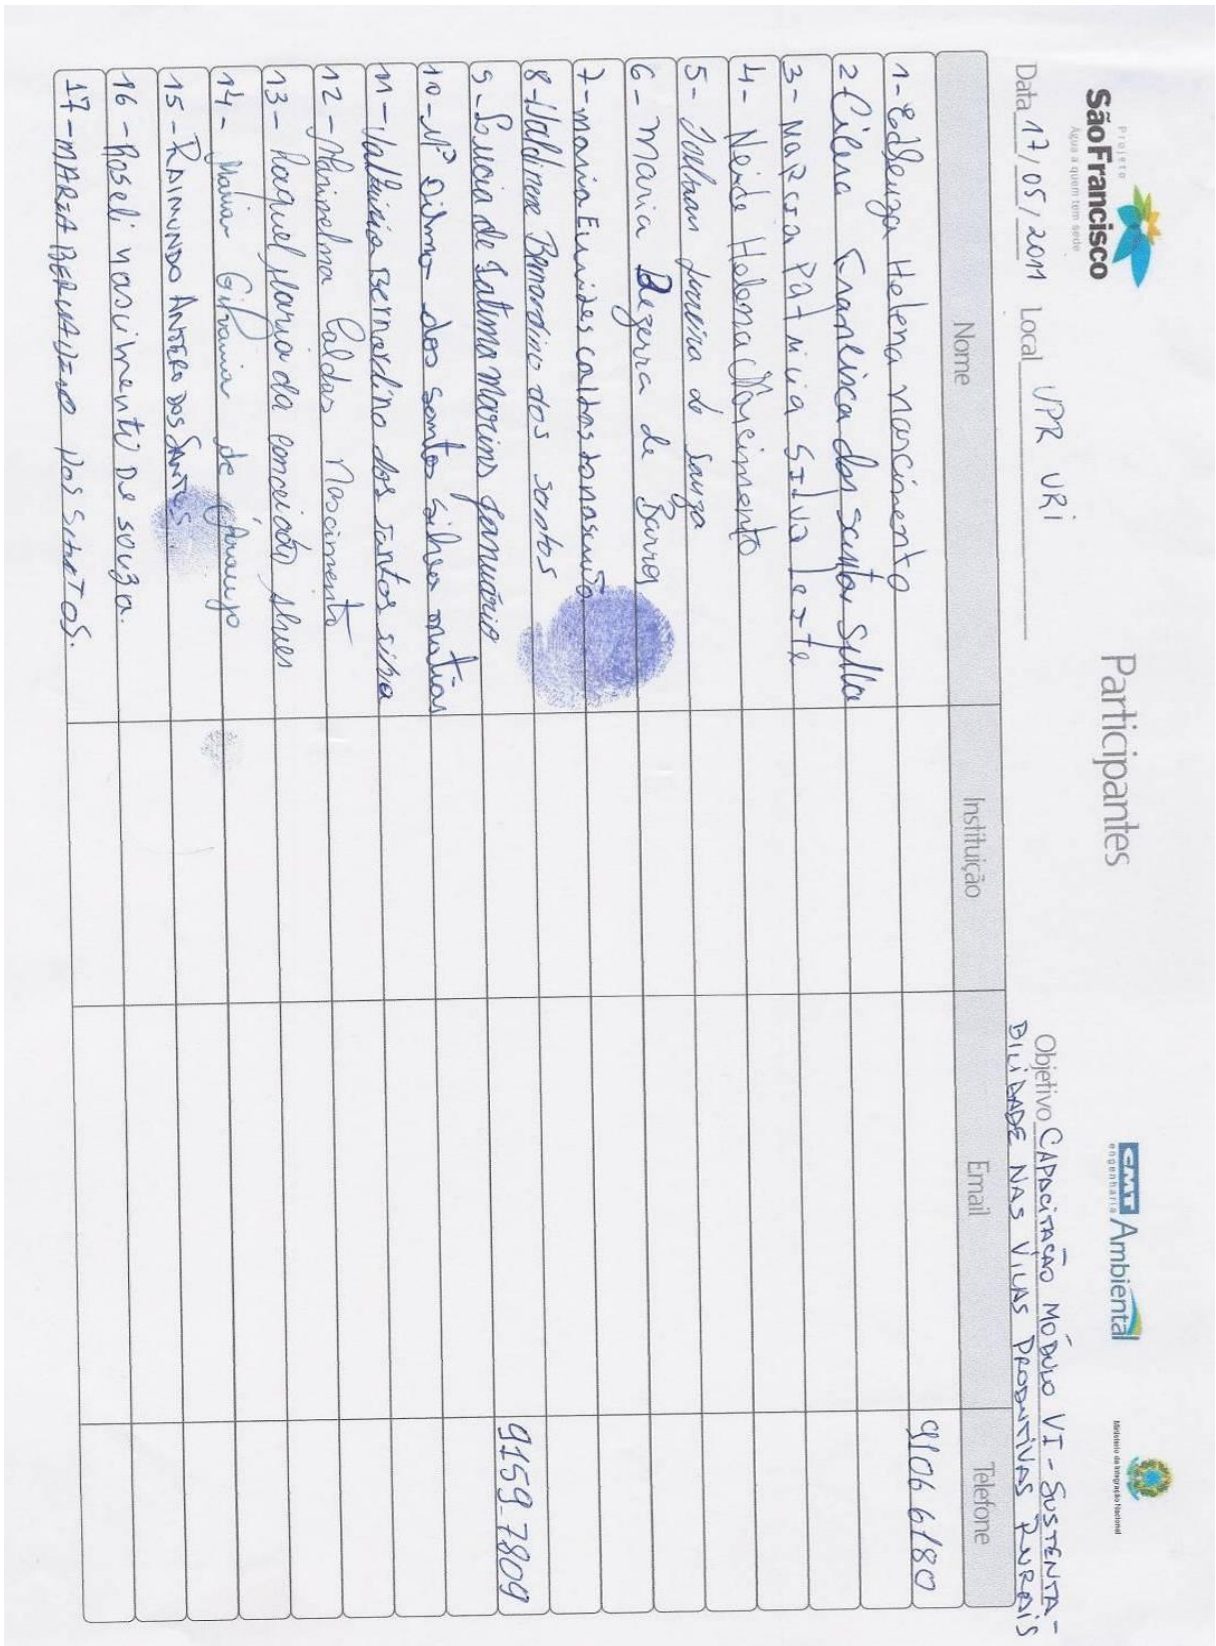 Projeto
São Francisco
Água a quem tem sede
Participantes
CMT Ambiental
engenharia
Ministério da Integração Nacional
Data 17/05/2011 Local VPR URI
Objetivo CAPACITAÇÃO MÓDULO VI - SUSTENTA-
BILIDADE NAS VILAS PRODUTIVAS RURAIS
Nome Instituição Email Telefone
1- Edileuza Helena nascimento 9106 6180
2- Cilera Francisca dos santos Silva
3- MaRcia Patricia Silva leite
4- Neide Helena Nascimento
5- pereira de Souza
6- Maria Bezerra de Barros
7- maria Eunides caldas do nascimento
8- Valdirene Bernardino dos santos
9- Lucia de Fatima Marins Januário 9159-7809
10- Mª Dilma dos santos silva matias
11- Valkiria Bernardino dos santos silva
12- Marinelma Caldas Nascimento
13- Raquel maria da conceição alves
14- Maria Gilvania de Araujo
15- RAIMUNDO ANTERO DOS SANTOS
16- Roseli nascimento De souza.
17- MARIA BERNALDINO DOS SANTOS.